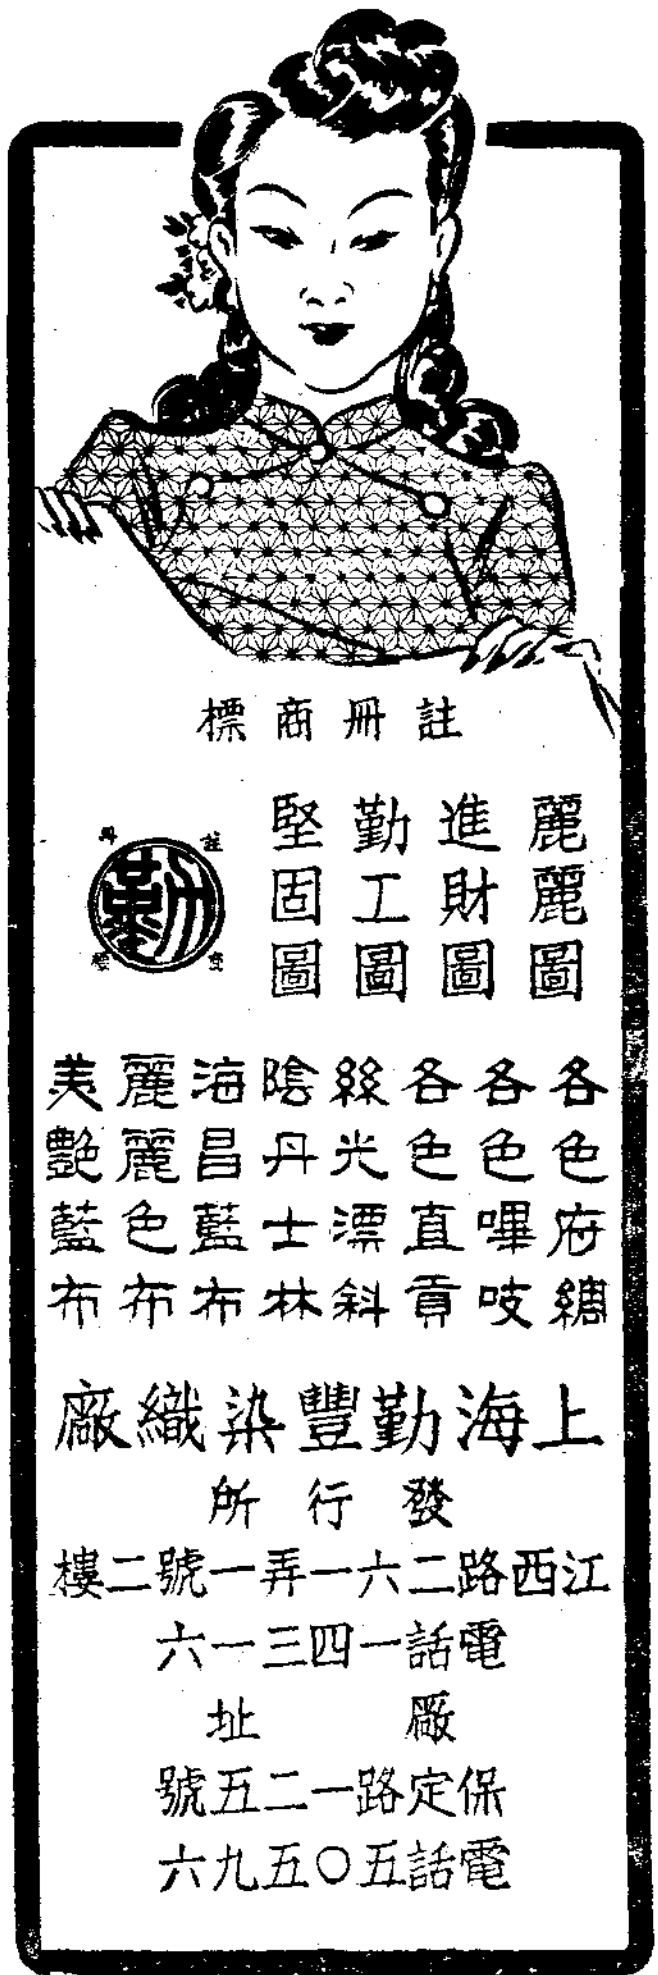 註冊商標
麗麗圖
進財圖
勤工圖
堅固圖
註冊商標
勤
各色府綢
各色嗶吱
各色直貢
絲光漂斜
陰丹士林
海昌藍布
麗麗色布
美艷藍布
上海勤豐染織廠
發行所
江西路二六一弄一號二樓
電話一四三一六
廠址
保定路一二五號
電話五〇五九六